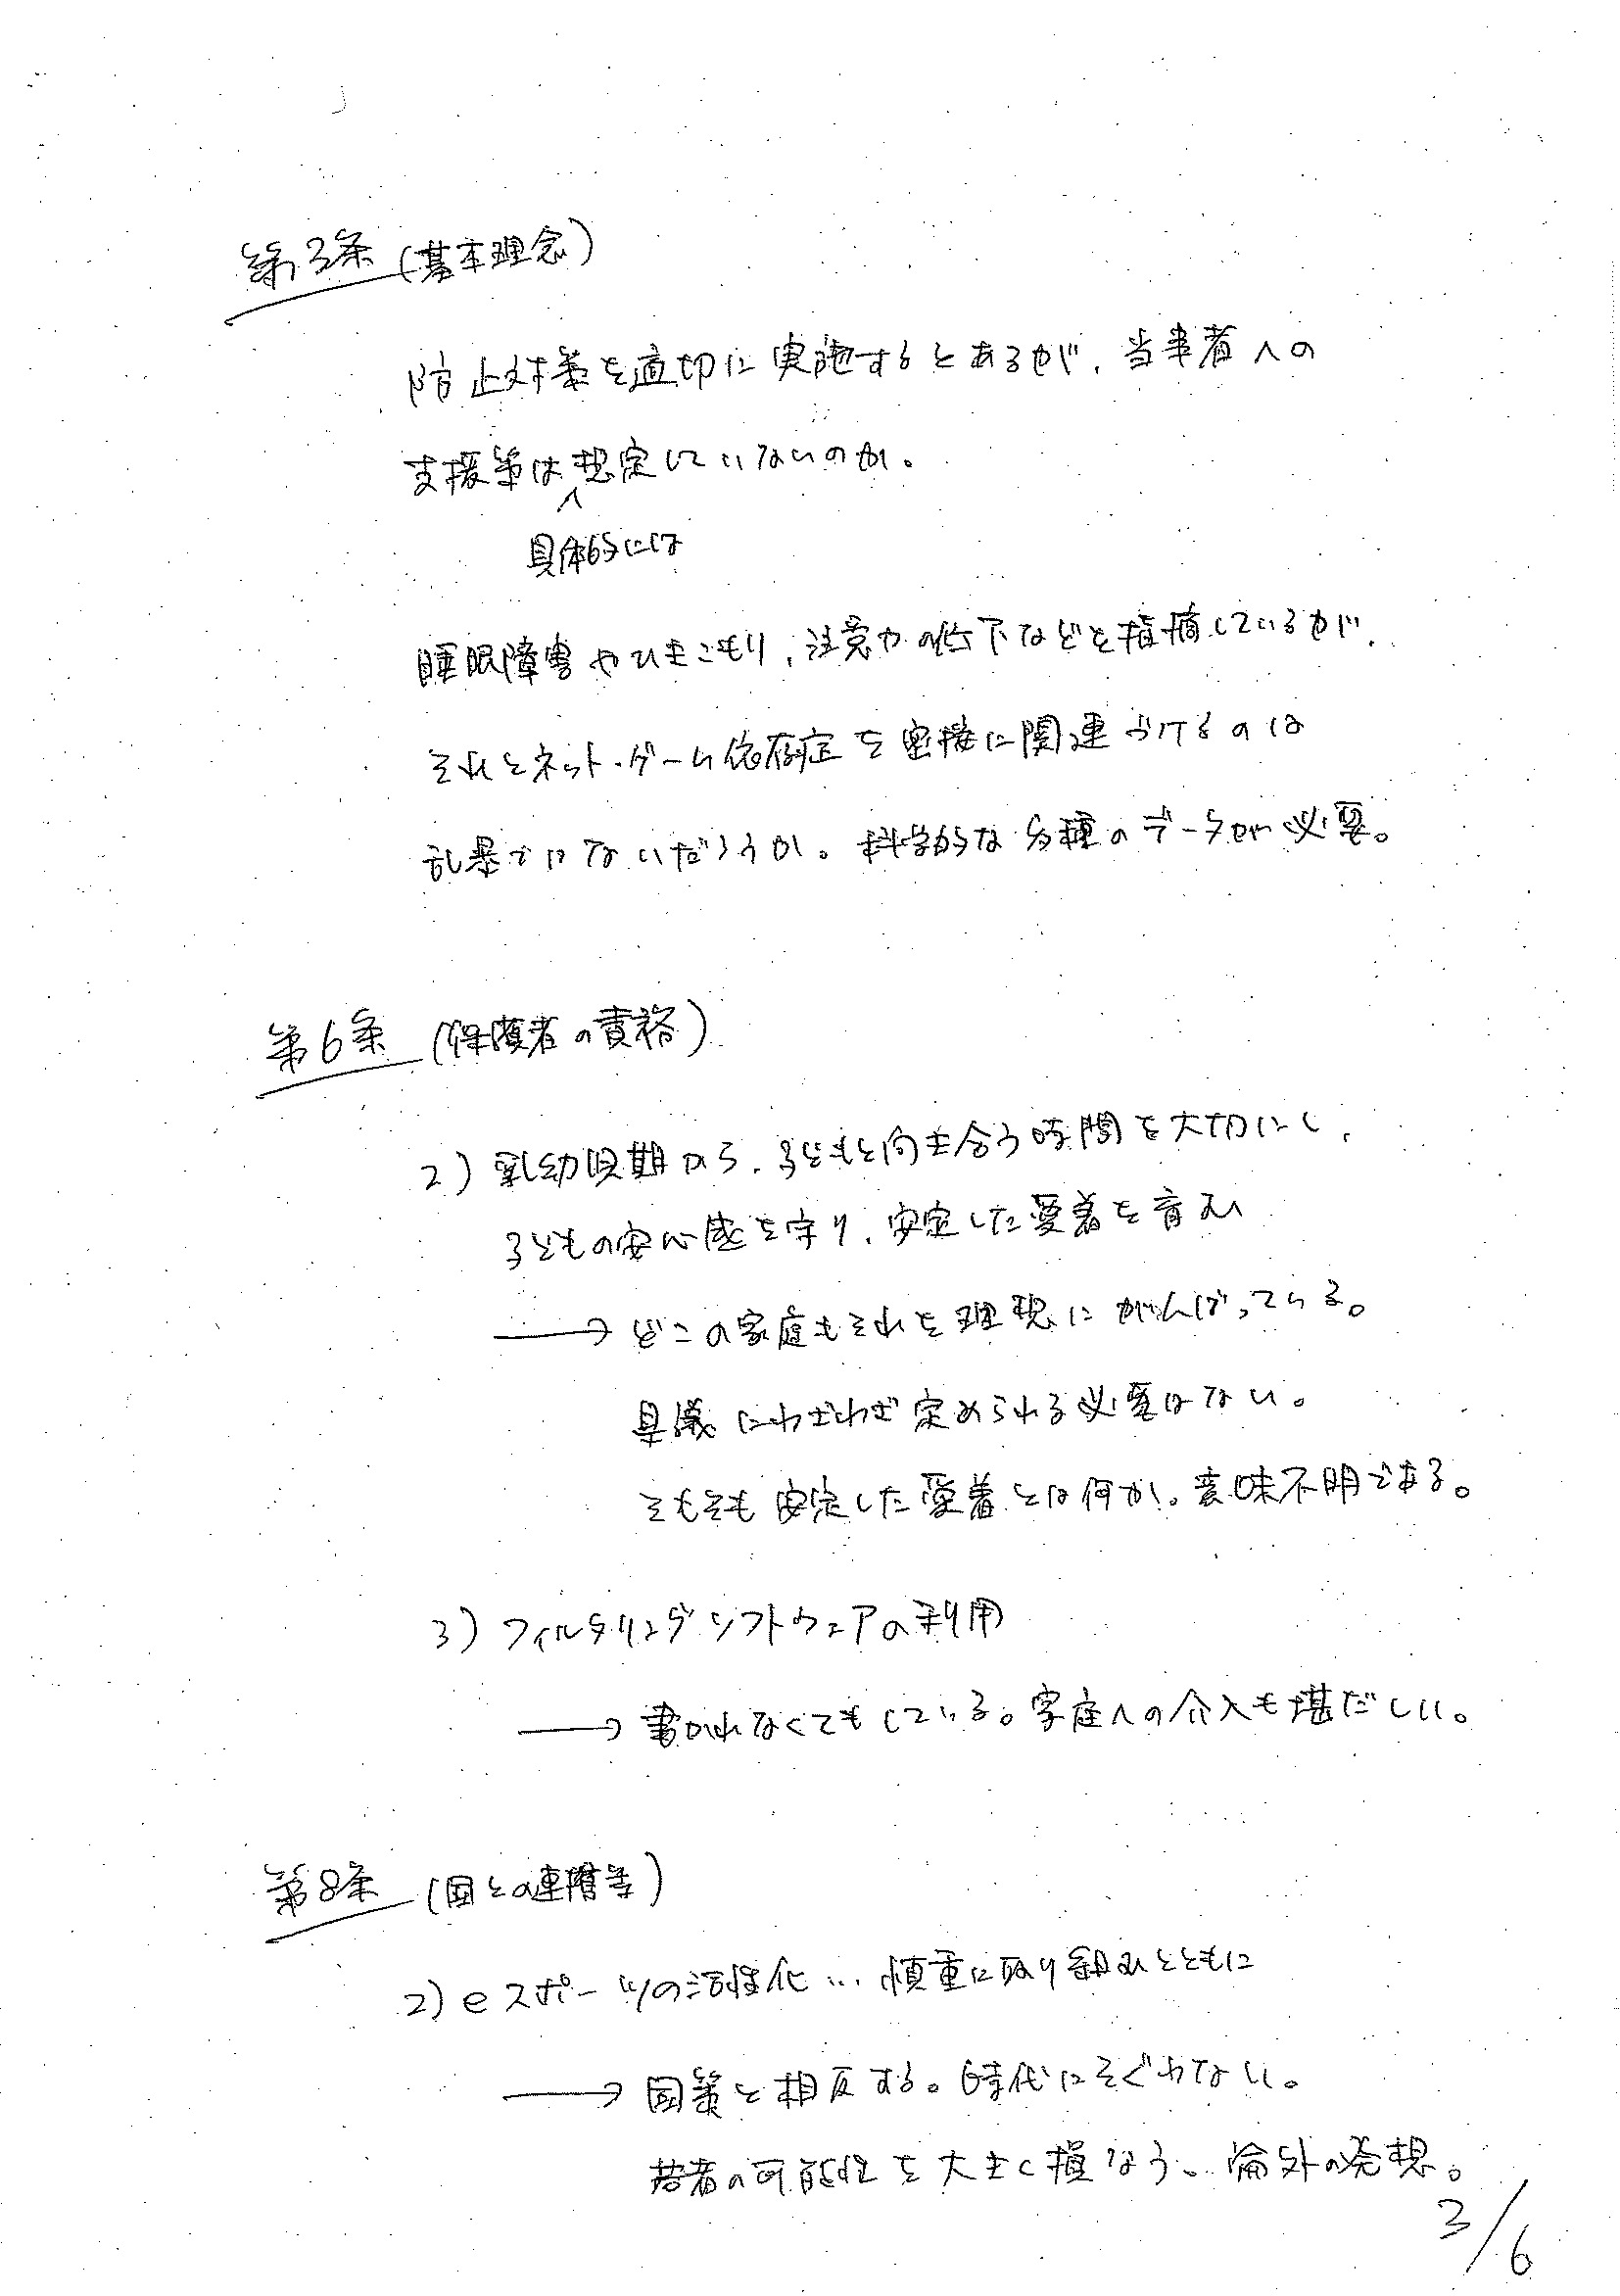 第3条(基本理念)
防止対策を適切に実施するとあるが、当事者への
支援策は想定していないのか。
具体的には
睡眠障害やひきこもり、注意力の低下などを指摘しているが、
それとネット・ゲーム依存症を密接に関連づけるのは
乱暴ではないだろうか。科学的な多種のデータが必要。
第6条(保護者の責務)
2) 乳幼児期から、子どもと向き合う時間を大切にし、
子どもの安心感を守り、安定した愛着を育み
→ どこの家庭もそれを理想にがんばっている。
県議にわざわざ定められる必要はない。
そもそも安定した愛着とは何か。意味不明である。
3) フィルタリングソフトウェアの利用
→ 書かれなくてもしている。家庭への介入も堪だしい。
第8条(国との連携等)
2) eスポーツの活性化… 慎重に取り組みとともに
→ 国策と相反する。時代にそぐわない。
若者の可能性を大きく損なう。論外の発想。
3/6